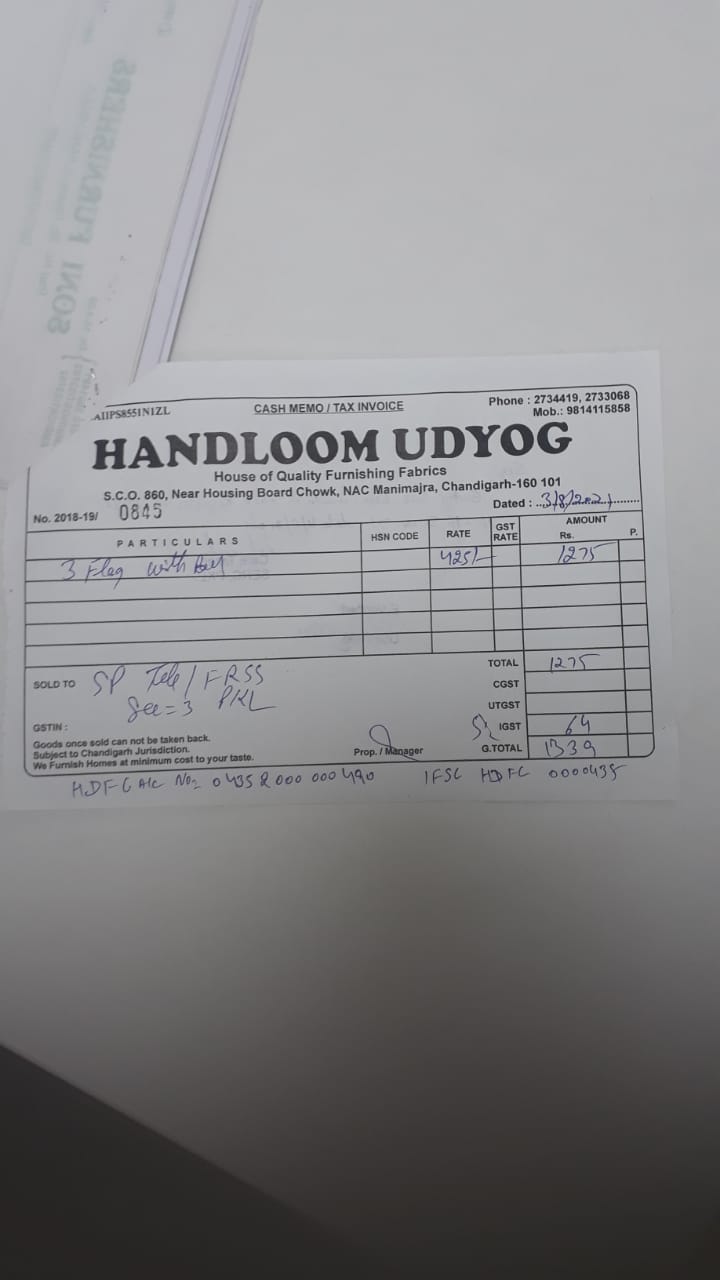 SONI FURNISHERS
AIIPS8551N1ZL
CASH MEMO / TAX INVOICE
Phone : 2734419, 2733068
Mob.: 9814115858
HANDLOOM UDYOG
House of Quality Furnishing Fabrics
S.C.O. 860, Near Housing Board Chowk, NAC Manimajra, Chandigarh-160 101
No. 2018-19/ 0845
Dated : 3/8/2021
PARTICULARS HSN CODE RATE GST RATE AMOUNT Rs. P.
3 Flag with 425/- 1275
TOTAL 1275
SOLD TO SP Tele / FRSS
Sec=3 PKL
CGST
UTGST
GSTIN :
5% IGST 64
Goods once sold can not be taken back.
Subject to Chandigarh Jurisdiction.
We Furnish Homes at minimum cost to your taste.
Prop. / Manager
G.TOTAL 1339
HDFC A/c No= 04358000000490 IFSC HDFC 0000435